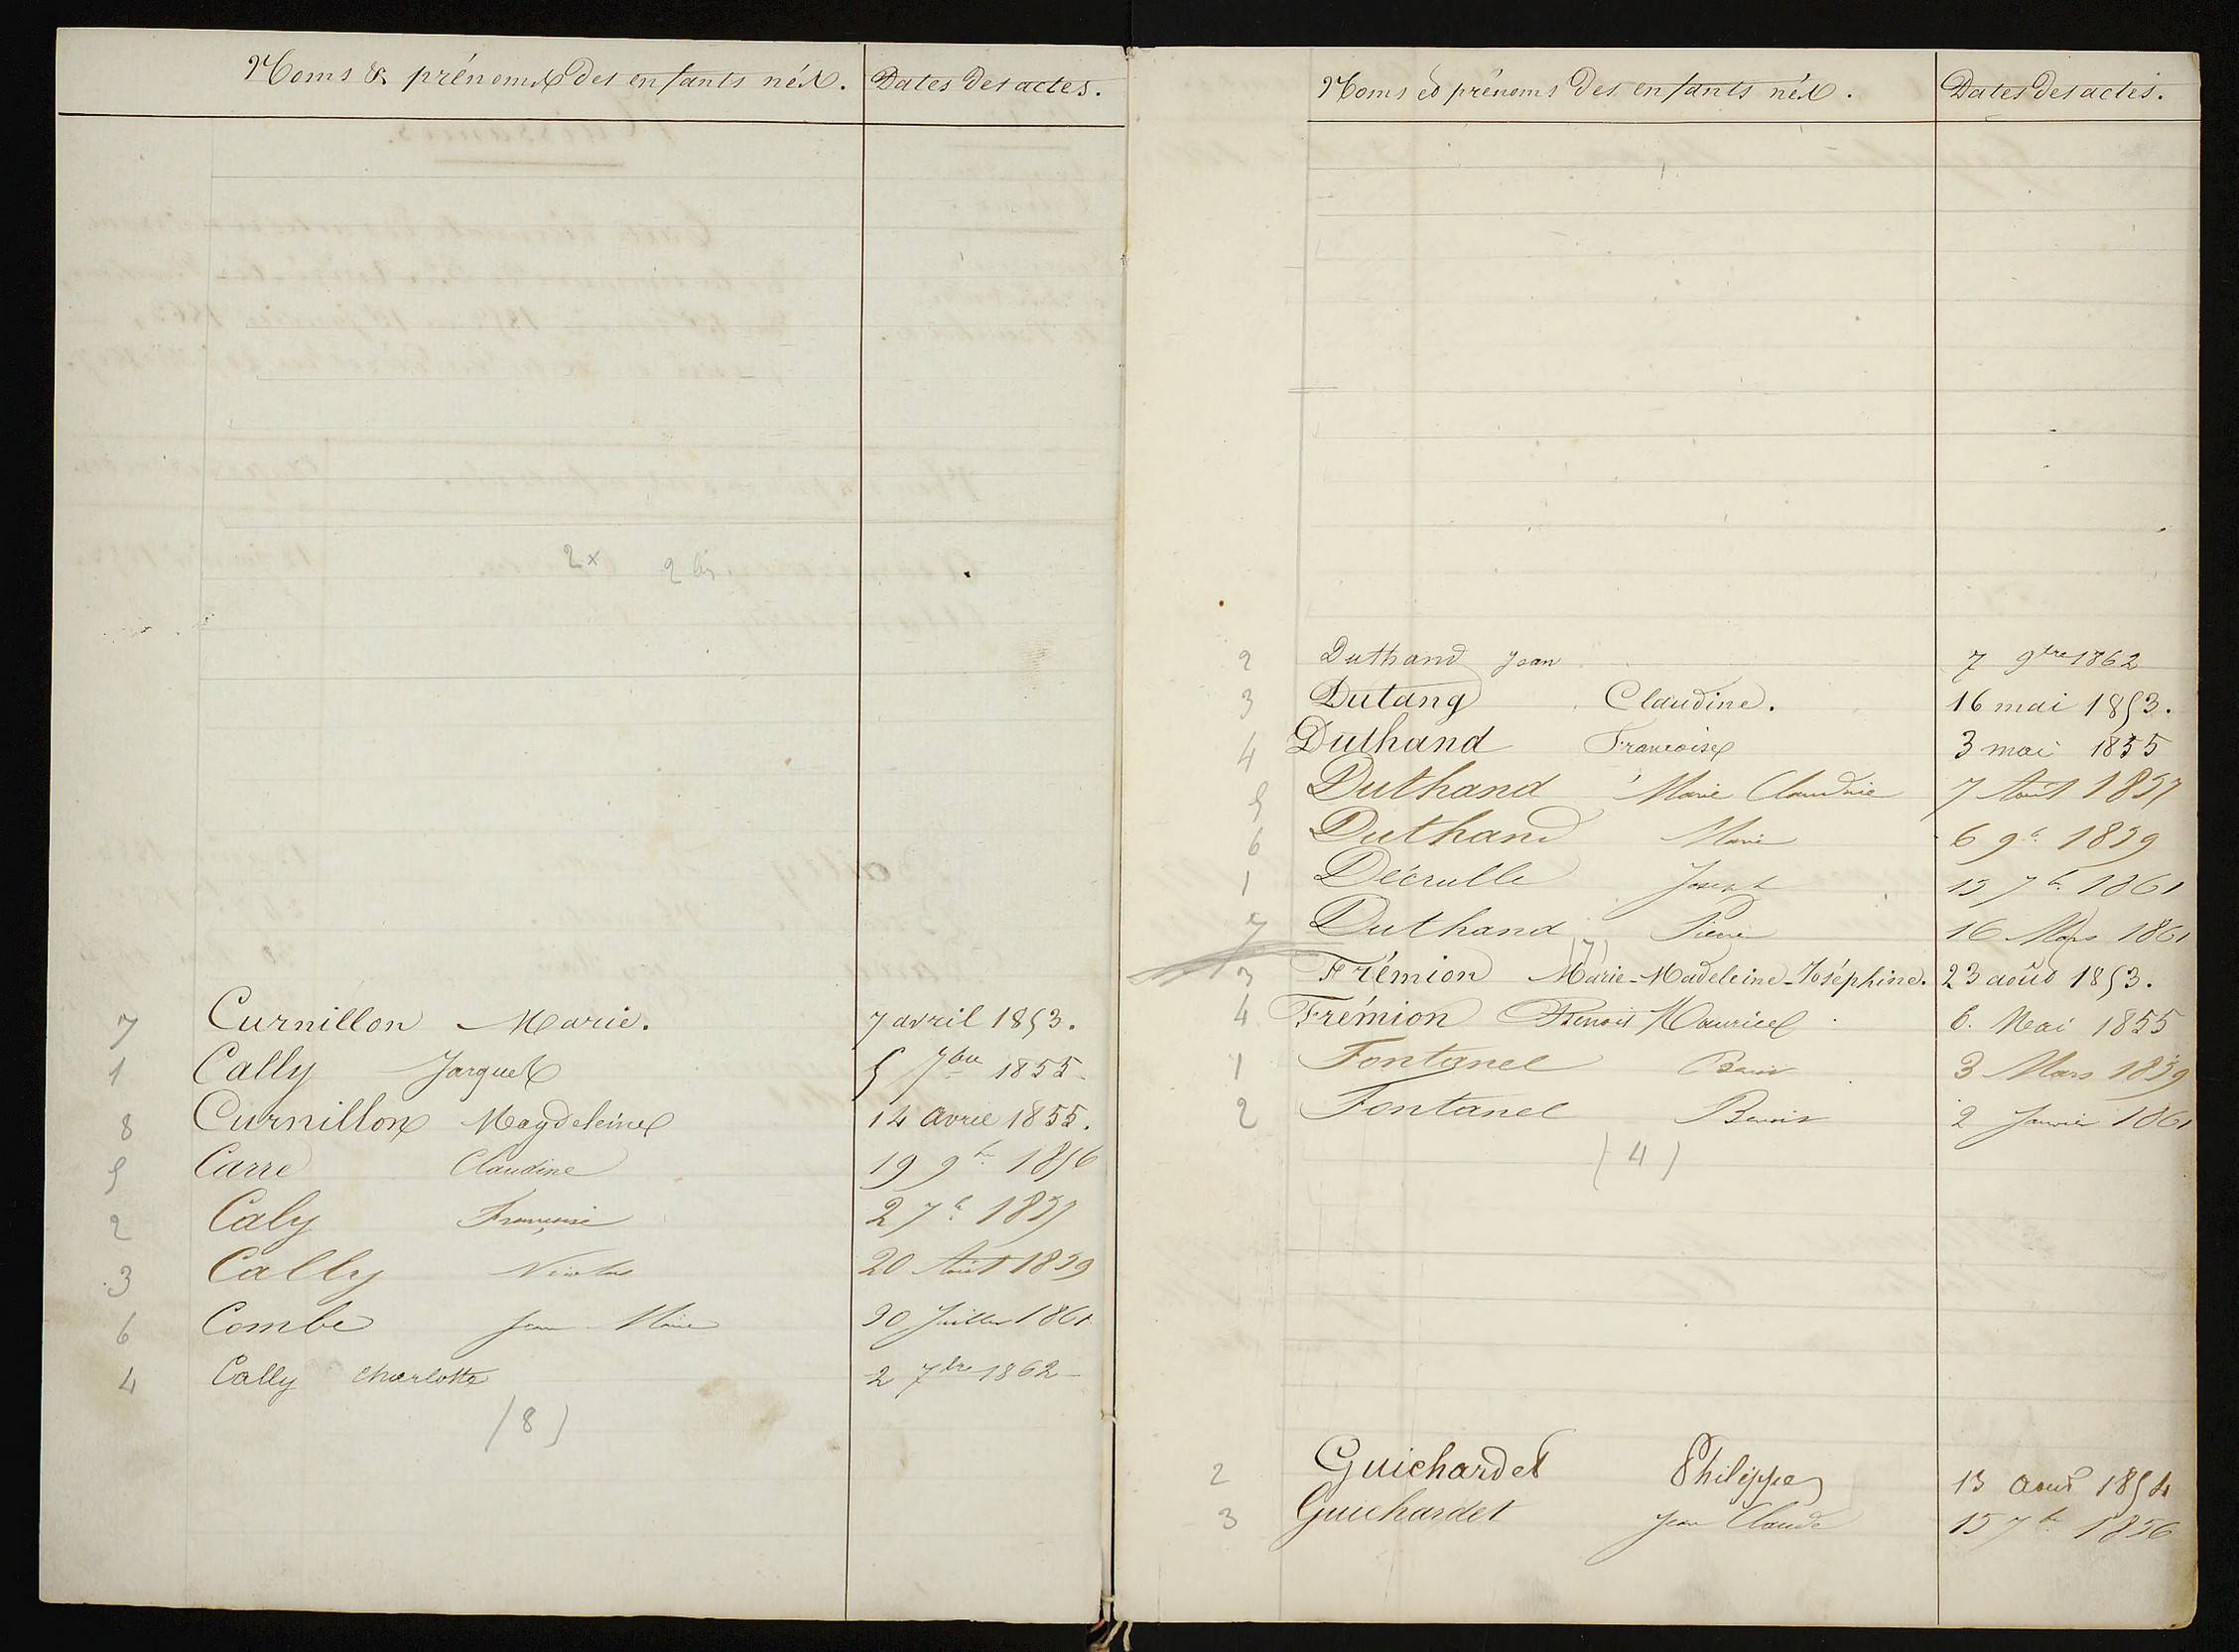 Noms & prénoms des enfants nés. Dates des actes.
2x 2 bis
7 Curnillon Marie. 7 avril 1853.
1 Cally Jacques 5 7bre 1855.
8 Curnillon Magdeleine 14 avril 1855.
5 Carre Claudine 19 9b. 1856
2 Caly Françoise 2 7b. 1857
3 Cally Nicolas 20 Août 1859
6 Combe Jean Marie 30 Juillet 1861
4 Cally Charlotte 2 7bre 1862
(8)
Noms et prénoms des enfants nés. Dates des actes.
2 Duthand Jean 7 9bre 1862
3 Dutang Claudine. 16 mai 1853.
4 Duthand Francoise 3 mai 1855
5 Duthand Marie Claudine 7 Août 1857
6 Duthand Marie 6 9b. 1859
1 Décrulle Joseph 15 7b. 1861
7 Duthand Pierre 16 Mars 1861
(7)
3 Frémion Marie-Madeleine-Joséphine. 23 août 1853.
4 Frémion Benoit Maurice 6. Mai 1855
1 Fontanel 3 Mars 1859
2 Fontanel Benoit 2 Janvier 1861
(4)
2 Guichardet Philippe 13 août 1854
3 Guichardet Jean Claude 15 7b. 1856